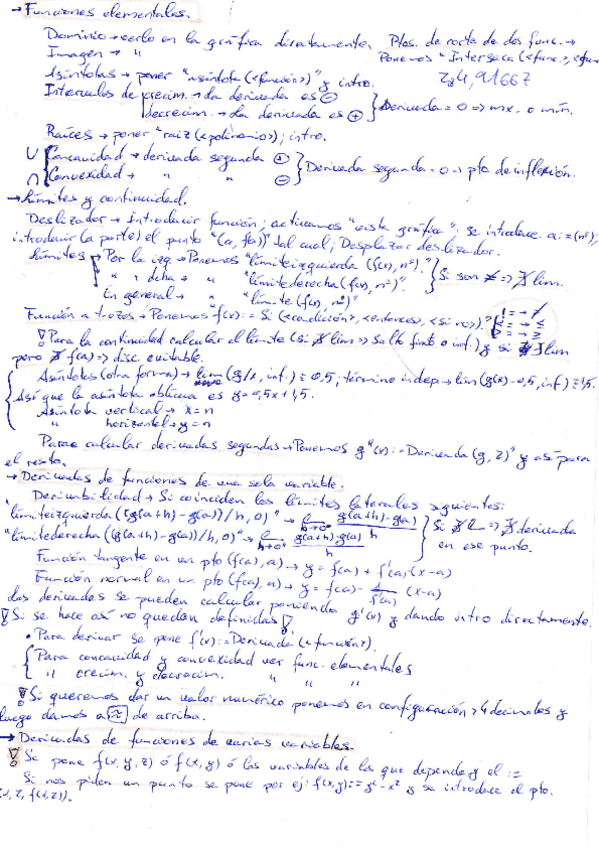 → Funciones elementales.
Dominio → verlo en la gráfica directamente. Ptos. de corte de dos func. →
Imagen → " Ponemos "Interseca(<func>, <func
Asíntotas → poner "asíntota(<función>)" y intro. 4,91667
Intervalos de crecim. → la derivada es ⊖ } Derivada = 0 => mx. o mín.
decrecim. → la derivada es ⊕
Raíces → poner "raiz(<polinomio>); intro.
∪ Concavidad → derivada segunda ⊕ } Derivada segunda = 0 → pto de inflexión.
∩ Convexidad → " " ⊖
→ Límites y continuidad.
Deslizador → Introducir función; activamos "vista gráfica"; se introduce a:=(nº);
introducir (a parte) el punto "(a, f(a))" tal cual; Desplazar deslizador.
Límites Por la izq → Ponemos "límiteizquierda (f(x), nº)." } Si son ≠ => ∄ lim.
" " dcha → " "límitederecha (f(x), nº)."
En general → " "límite (f(x), nº)"
Función a trozos → Ponemos "f(x):= Si(<condición>, <entonces>, <si no>)."
Para la continuidad calcular el límite (si ∄ lim => Salto finito o inf.) y si ∃ lim
pero ∄ f(a) => disc. evitable.
Asíntotas (otra forma) → lim (g/x, inf.) = 0,5; término indep → lim (g(x)-0,5, inf) = 1,5.
Así que la asíntota oblicua es y = 0,5x + 1,5.
Asíntota vertical → x = n
" horizontal → y = n
Para calcular derivadas segundas → Ponemos g''(x):= Derivada(g, 2)" y así para
el resto.
→ Derivadas de funciones de una sola variable.
Derivabilidad → Si coinciden los límites laterales siguientes:
"límiteizquierda ((g(a+h)-g(a))/h, 0)" → lim h→0⁻ g(a+h)-g(a) / h } Si ∄ lim => ∄ derivada
"límitederecha ((g(a+h)-g(a))/h, 0)" → lim h→0⁺ g(a+h)-g(a) / h en ese punto.
Función tangente en un pto (f(a), a) → y = f(a) + f'(a)(x-a)
Función normal en un pto (f(a), a) → y = f(a) - 1/f'(a) (x-a)
Las derivadas se pueden calcular poniendo g'(x) y dando intro directamente.
Si se hace así no quedan definidas
• Para derivar se pone f'(x):= Derivada(<función>).
Para concavidad y convexidad ver func. elementales
" crecim. y decrecim. " " "
Si queremos dar un valor numérico ponemos en configuración > 4 decimales y
luego damos a ≈ de arriba.
→ Derivadas de funciones de varias variables.
Se pone f(x, y, z) ó f(x, y) ó las variables de las que depende y el :=
Si nos piden un punto se pone por ej: f(x, y):= y² - x² y se introduce el pto.
2, f(1, 2)).